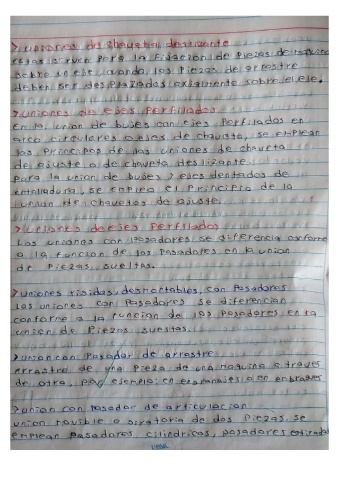 >Uniones de chaveta deslizante
estas sirven para la fijacion de piezas de maquina
sobre un eje, cuando las piezas de arrastre
deben ser desplazadas axialmente sobre el eje.
>Uniones de ejes perfilados
En la union de bujes con ejes perfilados en
arco circulares o ejes de chaveta, se emplean
los principios de las uniones de chaveta
de ajuste o de chaveta deslizante.
para la union de bujes y ejes dentados de
entalladura, se emplea el principio de la
union de chavetas de ajuste.
>Uniones de ejes perfilados
Las uniones con pasadores se diferencia conforme
a la funcion de los pasadores en la union
de piezas sueltas.
>Uniones rigidas, desmontables, con pasadores
las uniones con pasadores se diferencian
conforme a la funcion de los pasadores en la
union de piezas sueltas.
>union con pasador de arrastre
arrastre de una pieza de una maquina a traves
de otra, por ejemplo: en engranajes o en embragues
>union con pasador de articulacion
union movible o giratoria de dos piezas. se
emplean pasadores cilindricos, pasadores estriados